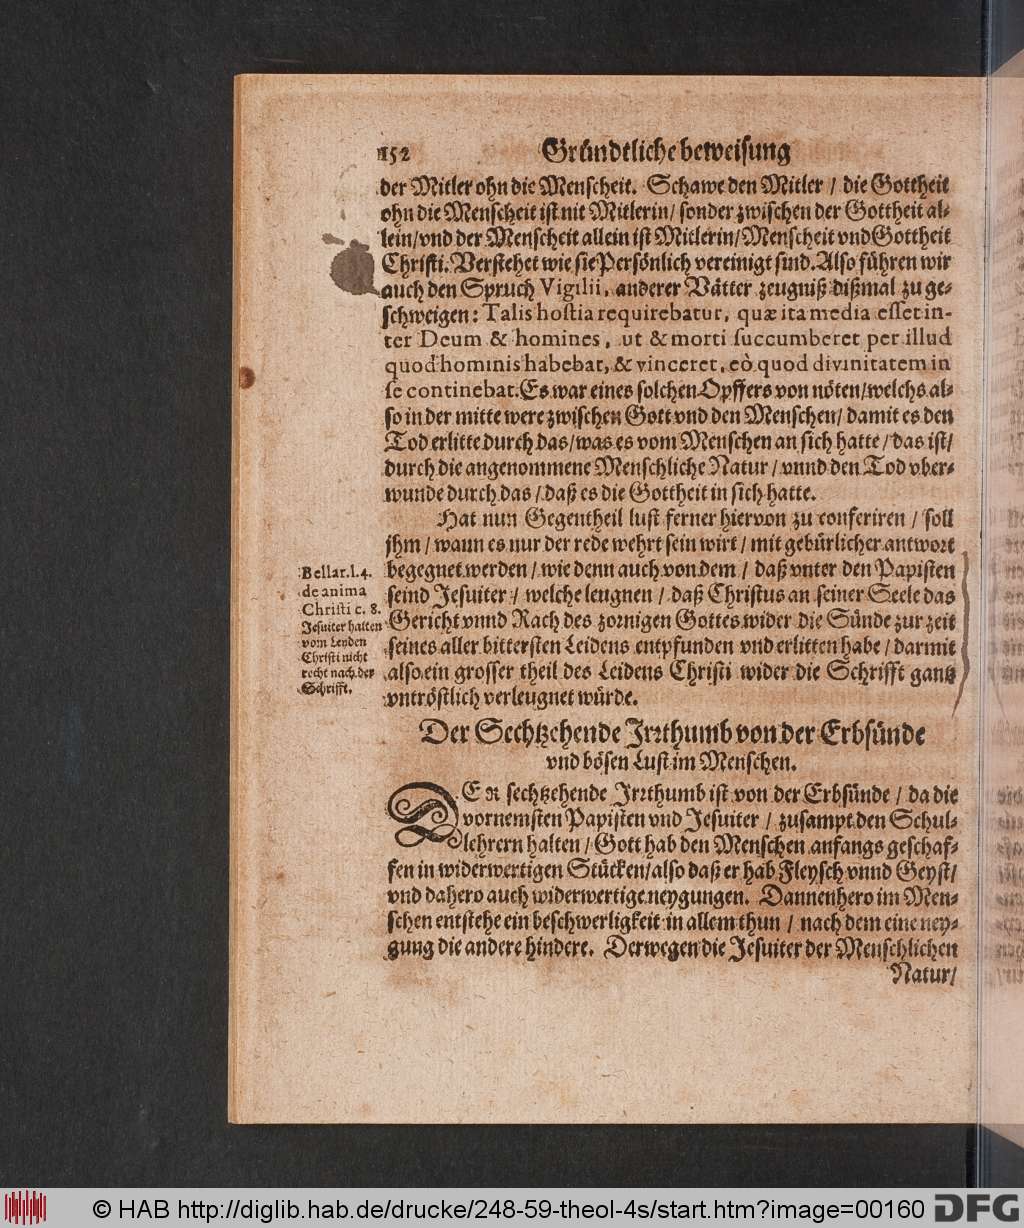 152 Gründtliche beweisung
der Mitler ohn die Menscheit. Schawe den Mitler / die Gottheit
ohn die Menscheit ist nit Mitlerin / sonder zwischen der Gottheit al-
lein / vnd der Menscheit allein ist Mitlerin / Menscheit vnd Gottheit
Christi. Verstehet wie sie Persönlich vereinigt sind. Also führen wir
auch den Spruch Vigilii, anderer Vätter zeugniß dißmal zu ge-
schweigen: Talis hostia requirebatur, quæ ita media esset in-
ter Deum & homines, ut & morti succumberet per illud
quod hominis habebat, & vinceret, eò quod divinitatem in
se continebat. Es war eines solchen Opffers von nöten / welchs al-
so in der mitte were zwischen Gott vnd den Menschen / damit es den
Tod erlitte durch das / was es vom Menschen an sich hatte / das ist /
durch die angenommene Menschliche Natur / vnnd den Tod vber-
wunde durch das / daß es die Gottheit in sich hatte.
Hat nun Gegentheil lust ferner hiervon zu conferiren / soll
jhm / wann es nur der rede wehrt sein wirt / mit gebürlicher antwort
begegnet werden / wie denn auch von dem / daß vnter den Papisten
seind Jesuiter / welche leugnen / daß Christus an seiner Seele das
Gericht vnnd Rach des zornigen Gottes wider die Sünde zur zeit
seines aller bittersten Leidens entpfunden vnd erlitten habe / darmit
also ein grosser theil des Leidens Christi wider die Schrifft gantz
vntröstlich verleugnet würde.
Bellar. l. 4.
de anima
Christi c. 8.
Jesuiter halten
vom Leyden
Christi nicht
recht nach der
Schrifft.
Der Sechtzehende Irrthumb von der Erbsünde
vnd bösen Lust im Menschen.
DEr sechtzehende Irrthumb ist von der Erbsünde / da die
vornemsten Papisten vnd Jesuiter / zusampt den Schul-
lehrern halten / Gott hab den Menschen anfangs geschaf-
fen in widerwertigen Stücken / also daß er hab Fleysch vnnd Geyst /
vnd dahero auch widerwertige neygungen. Dannenhero im Men-
schen entstehe ein beschwerligkeit in allem thun / nach dem eine ney-
gung die andere hindere. Derwegen die Jesuiter der Menschlichen
Natur /
© HAB http://diglib.hab.de/drucke/248-59-theol-4s/start.htm?image=00160 DFG